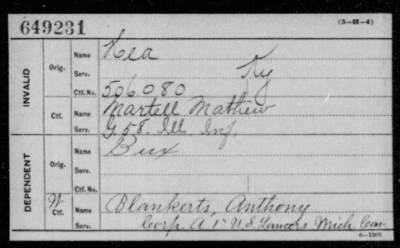 649231
(3—H—4)
INVALID
Orig.
Name Kea
Serv. Ky
Ctf. No. 506080
Ctf.
Name Martell Mathew
Serv. G 58. Ill Inf.
DEPENDENT
Orig.
Name Bux
Serv.
Ctf. No.
W
Ctf.
Name Blankerts, Anthony
Serv. Corp. A 1st U.S. Lancers Mich Cav.
6—1361